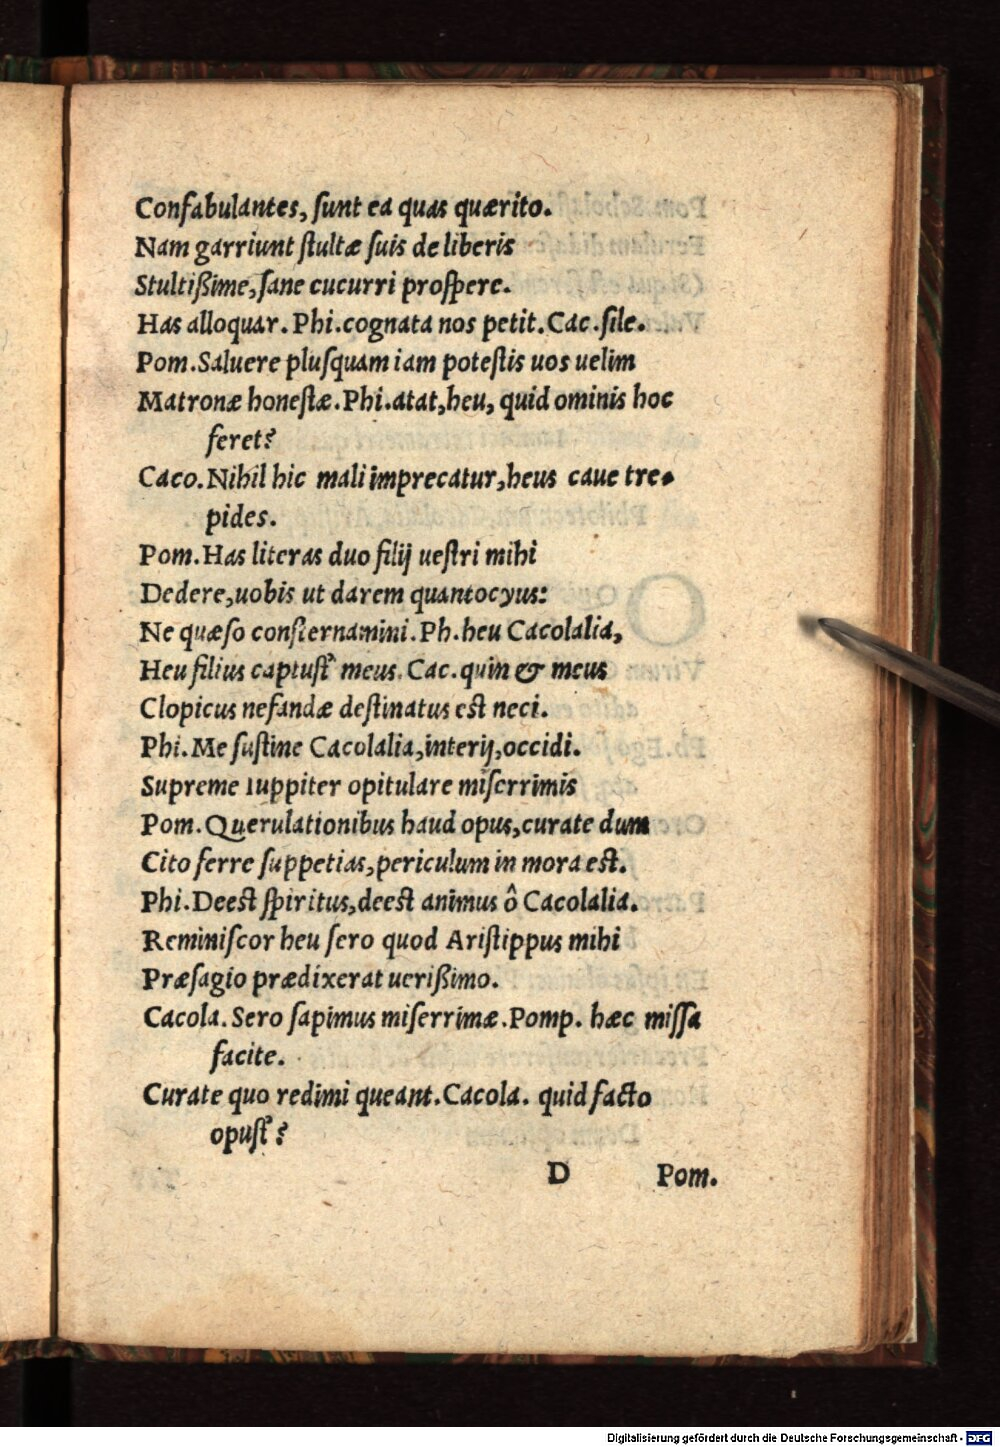 Confabulantes, ſunt ea quas quærito.
Nam garriunt ſtultæ ſuis de liberis
Stultißime, ſane cucurri proſpere.
Has alloquar. Phi.cognata nos petit. Cac.ſile.
Pom.Saluere pluſquam iam poteſtis uos uelim
Matronæ honeſtæ. Phi.atat, heu, quid ominis hoc
feret?
Caco.Nihil hic mali imprecatur, heus caue tre⸗
pides.
Pom.Has literas duo filij ueſtri mihi
Dedere, uobis ut darem quantocyus:
Ne quæſo conſternamini. Ph.heu Cacolalia,
Heu filius captuſt' meus. Cac.quin & meus
Clopicus nefandæ deſtinatus eſt neci.
Phi.Me ſuſtine Cacolalia, interij, occidi.
Supreme Iuppiter opitulare miſerrimis
Pom.Querulationibus haud opus, curate dum
Cito ferre ſuppetias, periculum in mora eſt.
Phi.Deeſt ſpiritus, deeſt animus ô Cacolalia.
Reminiſcor heu ſero quod Ariſtippus mihi
Præſagio prædixerat uerißimo.
Cacola. Sero ſapimus miſerrimæ. Pomp. hæc miſſa
facite.
Curate quo redimi queant. Cacola. quid facto
opuſt'?
D Pom.
Digitalisierung gefördert durch die Deutsche Forschungsgemeinschaft - DFG